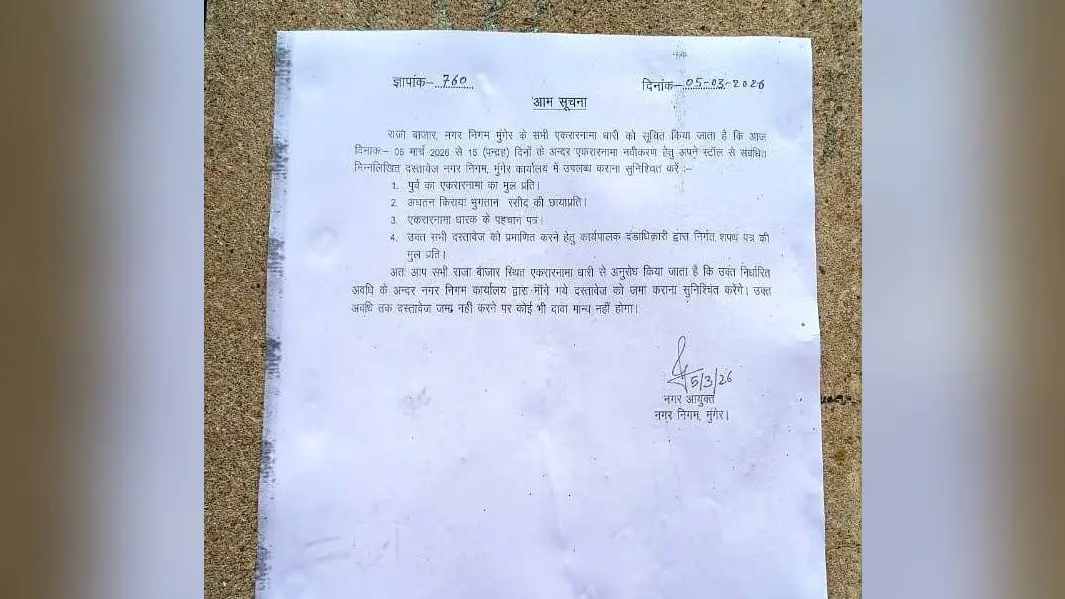 ज्ञापांक-...760...
दिनांक-...05-03-2026
आम सूचना
राजा बाजार, नगर निगम मुंगेर के सभी एकरारनामा धारी को सूचित किया जाता है कि आज
दिनांक:- 05 मार्च 2026 से 15 (पन्द्रह) दिनों के अन्दर एकरारनामा नवीकरण हेतु अपने स्टॉल से संबंधित
निम्नलिखित दस्तावेज नगर निगम, मुंगेर कार्यालय में उपलब्ध कराना सुनिश्चित करें :-
1. पुर्व का एकरारनामा का मुल प्रति।
2. अधतन किराया भुगतान रसीद की छायाप्रति।
3. एकरारनामा धारक के पहचान पत्र।
4. उक्त सभी दस्तावेज को प्रमाणित करने हेतु कार्यपालक दंडाधिकारी द्वारा निर्गत शपथ पत्र की
मुल प्रति।
अतः आप सभी राजा बाजार स्थित एकरारनामा धारी से अनुरोध किया जाता है कि उक्त निर्धारित
अवधि के अन्दर नगर निगम कार्यालय द्वारा माँगे गये दस्तावेज को जमा कराना सुनिश्चित करेंगे। उक्त
अवधि तक दस्तावेज जमा नहीं करने पर कोई भी दावा मान्य नहीं होगा।
5/3/26
नगर आयुक्त
नगर निगम, मुंगेर।